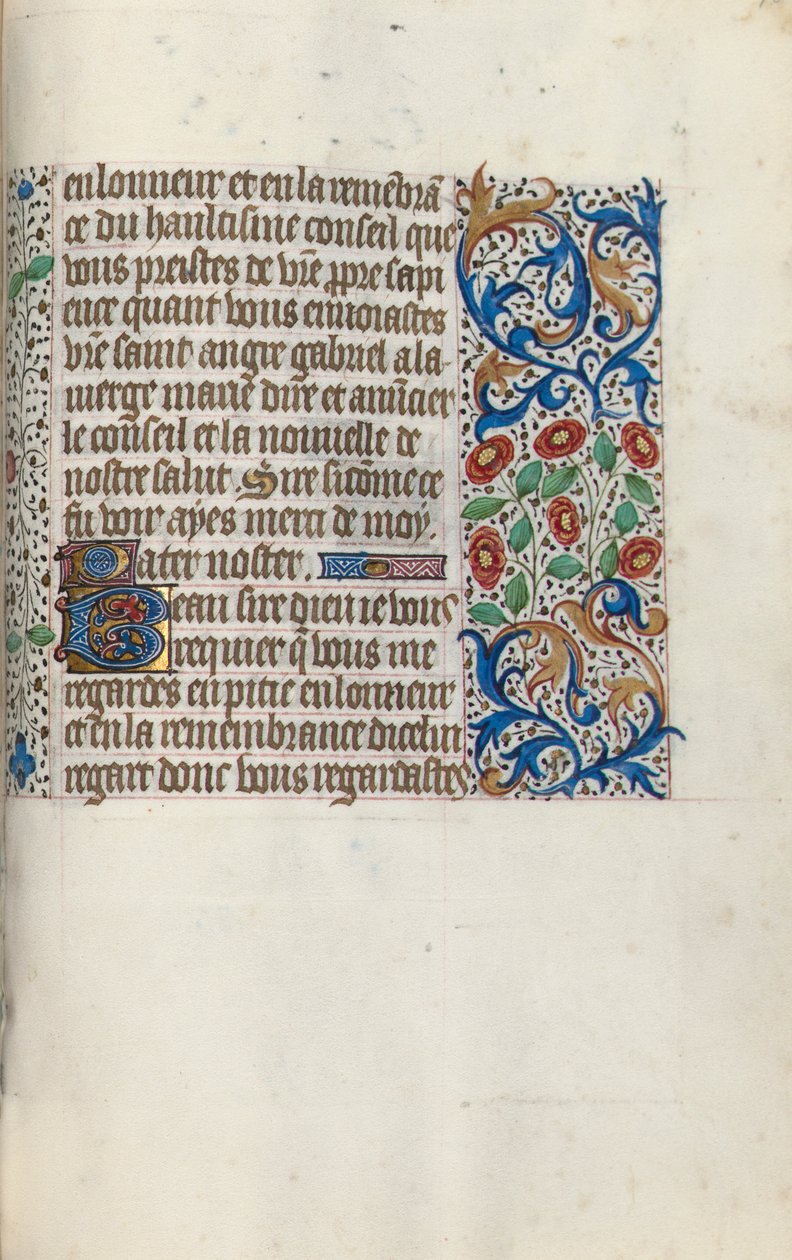 en lonneur et en la remēbrā
ce du haultisme conseil que
vous preistes de vr̄e ꝓpre sapi
ence quant vous enuoiastes
vr̄e saint angre gabriel a la
vierge marie dire et anūcier
le cōnseil et la nouuelle de
nostre salut Sire si cōme ce
fu voir ayes merci de moy.
Pater noster.
Beau sire dieu ie vous
requier q̄ vous me
regardes en pitie en lonneur
et en la remembrance dicelui
regart donc vous regardastes